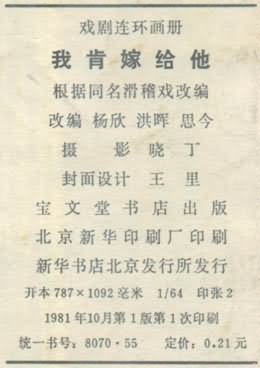 戏剧连环画册
我肯嫁给他
根据同名滑稽戏改编
改编 杨欣 洪晖 思今
摄 影 晓 丁
封面设计 王 里
宝文堂书店出版
北京新华印刷厂印刷
新华书店北京发行所发行
开本787×1092毫米 1/64 印张2
1981年10月第1版第1次印刷
统一书号:8070·55 定价:0.21元